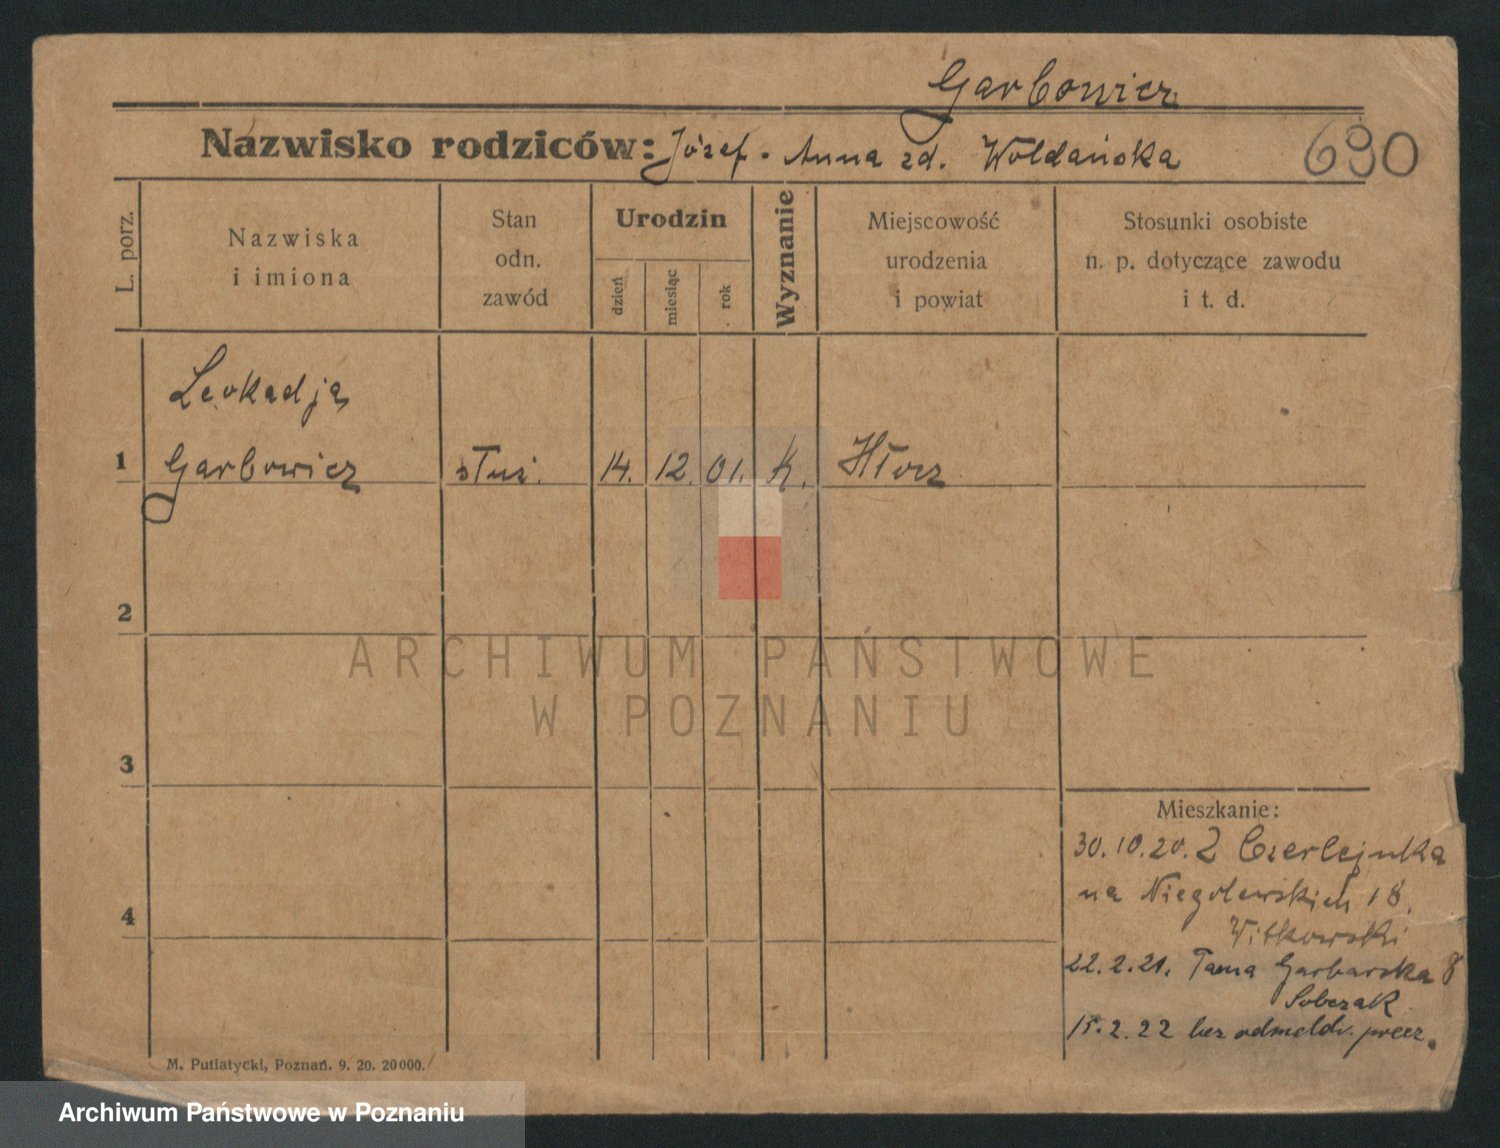 Garbowicz
Nazwisko rodziców: Józef - Anna zd. Woldańska
690
L. porz.
Nazwiska
i imiona
Stan
odn.
zawód
Urodzin
dzień
miesiąc
rok
Wyznanie
Miejscowość
urodzenia
i powiat
Stosunki osobiste
n. p. dotyczące zawodu
i t. d.
Leokadja
1 Garbowicz służ. 14. 12. 01. K.
2
ARCHIWUM PAŃSTWOWE
W POZNANIU
3
Mieszkanie:
30.10.20. Z Czerlejnka
na Niegolewskich 18.
4
Witkowski
22.2.21. Tama Garbarska 8
Sobczak
15.2.22 bez odmeldv. precz.
M. Putiatycki, Poznań. 9. 20. 20000.
Archiwum Państwowe w Poznaniu